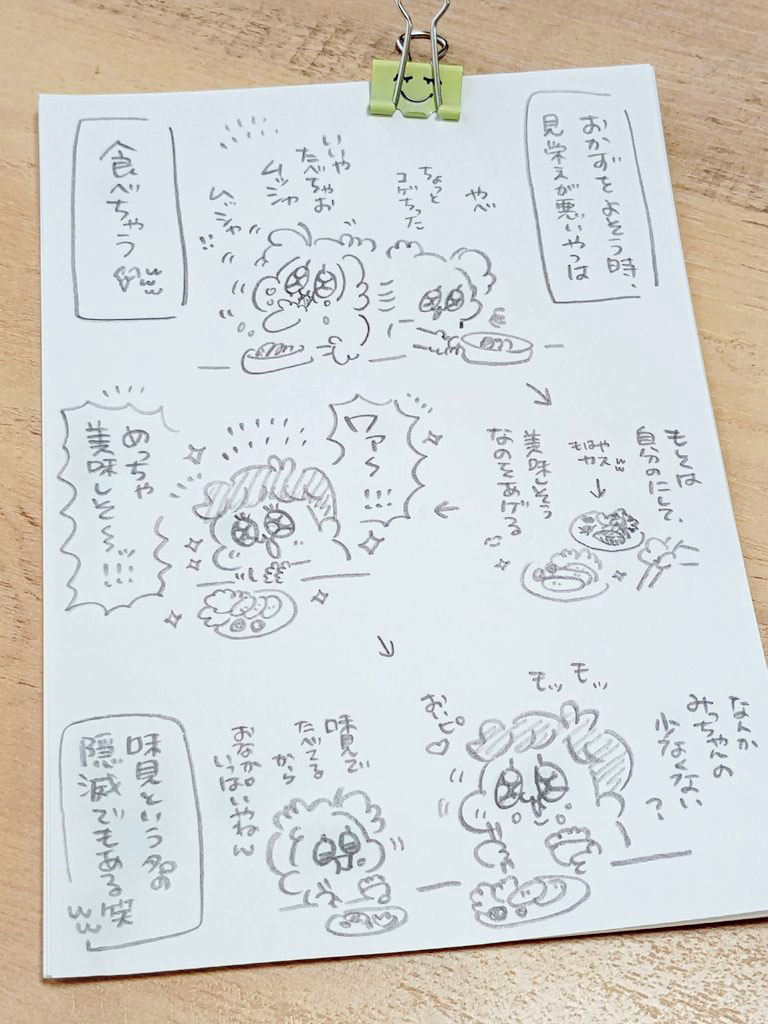 おかずをよそう時、
見栄えが悪いやつは
やべ
ちょっと
コゲちった
いいや
たべちゃお
ムッシャ
ムッシャ
!!
食べちゃう
www
もしくは
自分のにして、
はやスww
モカ
美味しそう
なのをあげる
ワァ〜!!!
めっちゃ
美味しそ〜〜ッ!!!
なんか
みっちゃんの
少なくない
?
モッ モッ
おいピ♡
味見で
たべてる
から
おなか
いっぱいやねん
味見という名の
隠滅でもある笑
www